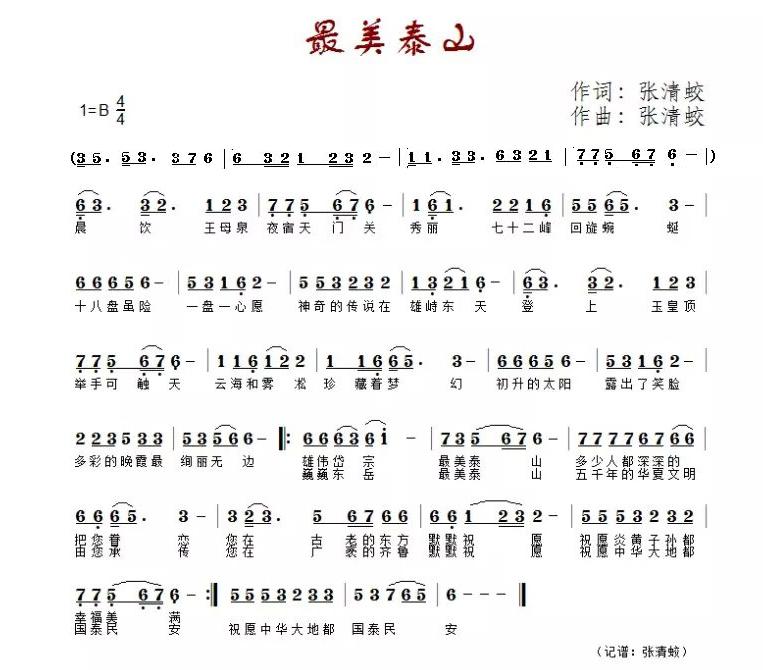 最美泰山
作词：张清蛟
1=B 4/4
作曲：张清蛟
(35. 53. 376 | 6 321 232 - | 11. 33. 6321 | 775 67 6 - | )
63. 32. 123 | 775 676 - | 161. 2216 | 5565. 3 - |
晨 饮 王母泉 夜宿天门关 秀丽 七十二峰 回旋蜿 蜒
66656 - | 53162 - | 553232 | 13216 - | 63. 32. 123 |
十八盘虽险 一盘一心愿 神奇的传说在 雄峙东天 登 上 玉皇顶
775 676 - | 116122 | 1 1665. 3 - | 66656 - | 53165 - |
举手可触天 云海和雾凇 珍藏着梦 幻 初升的太阳 露出了笑脸
223533 | 53566 - |: 66636i - | 735 676 - | 7776766 |
多彩的晚霞最 绚丽无边 雄伟岱宗 最美泰山 多少人都深深的
巍巍东岳 最美泰山 五千年的华夏文明
6665. 3 - | 323. 5 6767 | 661 232 - | 5553232 |
把您眷 恋 您在 古老的东方 默默祝 愿 祝愿炎黄子孙都
由您承 传 您在 广袤的齐鲁 默默祝 愿 祝愿中华大地都
775 676 - :| 5553233 | 53765 | 6 - - - |
幸福美 满
国泰民 安 祝愿中华大地都 国泰民 安
（记谱：张清蛟）